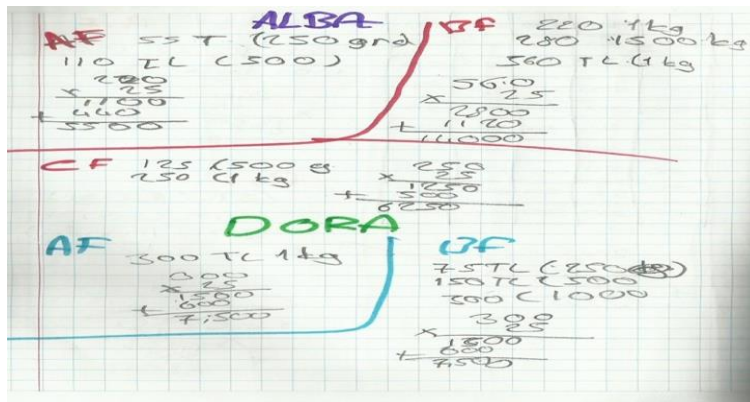 ALBA
AF 55 T (250 grd)
110 TL (500)
220
x 25
1100
+ 440
5500
BF 220 1kg
280 (500 kg
560 TL (1 kg
560
x 25
2800
+ 1120
14000
CF 125 (500 g
250 (1 kg
250
x 25
1250
+ 500
6250
DORA
AF 300 TL 1kg
300
x 25
1500
+ 600
7,500
BF
75 TL (250
150 TL (500
300 (1000
300
x 25
1500
+ 600
7,500